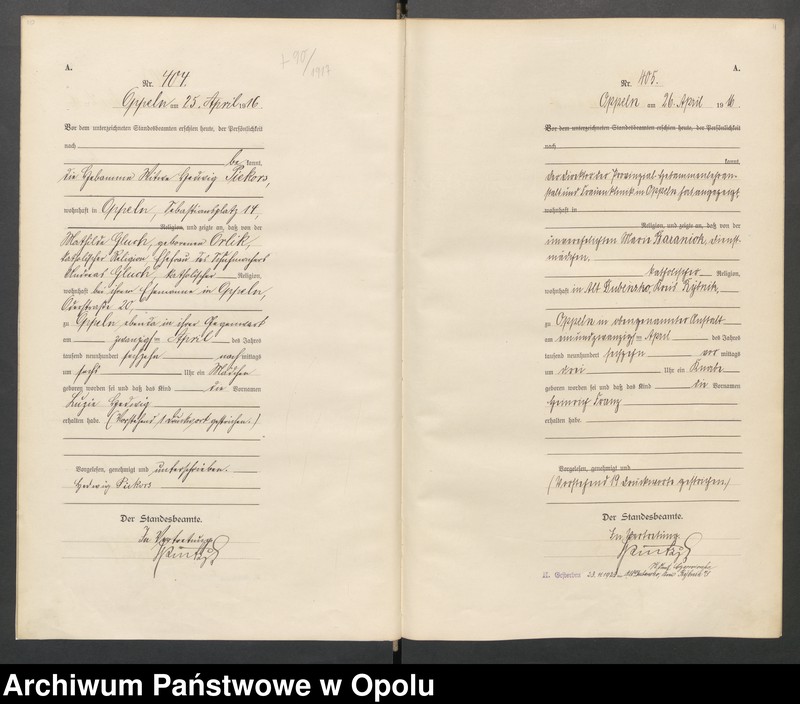 A.
Nr. 404.
Oppeln am 25. April 1916.
+ 90/1917
Vor dem unterzeichneten Standesbeamten erschien heute, der Persönlichkeit
nach
be kannt,
die Hebamme Witwe Hedwig Piekors,
wohnhaft in Oppeln, Sebastiansplatz 14,
Religion, und zeigte an, daß von der
Mathilde Gluch, geborenen Orlik,
katholischer Religion, Ehefrau des Schuhmachers
Andreas Gluch, katholischer Religion,
wohnhaft bei ihrem Ehemanne in Oppeln,
Oderstraße 20,
zu Oppeln ebenda in ihrer Gegenwart
am zwanzigsten April des Jahres
tausend neunhundert sechzehn nachmittags
um sechs Uhr ein Mädchen
geboren worden sei und daß das Kind die Vornamen
Luzie Hedwig
erhalten habe. (Vorstehend 1 Druckwort gestrichen.)
Vorgelesen, genehmigt und unterschrieben.
Hedwig Piekors
Der Standesbeamte.
In Vertretung
A.
Nr. 405.
Oppeln am 26. April 1916
Vor dem unterzeichneten Standesbeamten erschien heute, der Persönlichkeit
nach
kannt,
Der Direktor der Provinzial Hebammenlehran-
stalt und Frauenklinik in Oppeln hat angezeigt,
wohnhaft in
Religion, und zeigte an, daß von der
unverehelichten Marie, Dienst-
mädchen,
katholischer Religion,
wohnhaft in Alt Dubensko, Kreis Rybnik,
zu Oppeln in obengenannter Anstalt
am einundzwanzigsten April des Jahres
tausend neunhundert sechzehn vormittags
um drei Uhr ein Knabe
geboren worden sei und daß das Kind die Vornamen
Heinrich Franz
erhalten habe.
Vorgelesen, genehmigt und
(Vorstehend 13 Druckworte gestrichen)
Der Standesbeamte.
In Vertretung
Gestorben
Archiwum Państwowe w Opolu